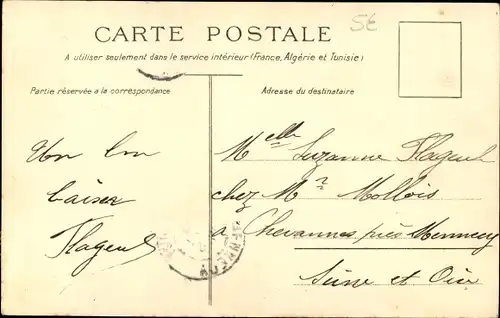 5E
CARTE POSTALE
A utiliser seulement dans le service intérieur (France, Algérie et Tunisie)
Partie réservée a la correspondance
Adresse du destinataire
Un bon
baiser
Flageul
Melle Suzanne Flageul
chez Mr Mollois
a Chevannes près Mennecy
Seine et Oise